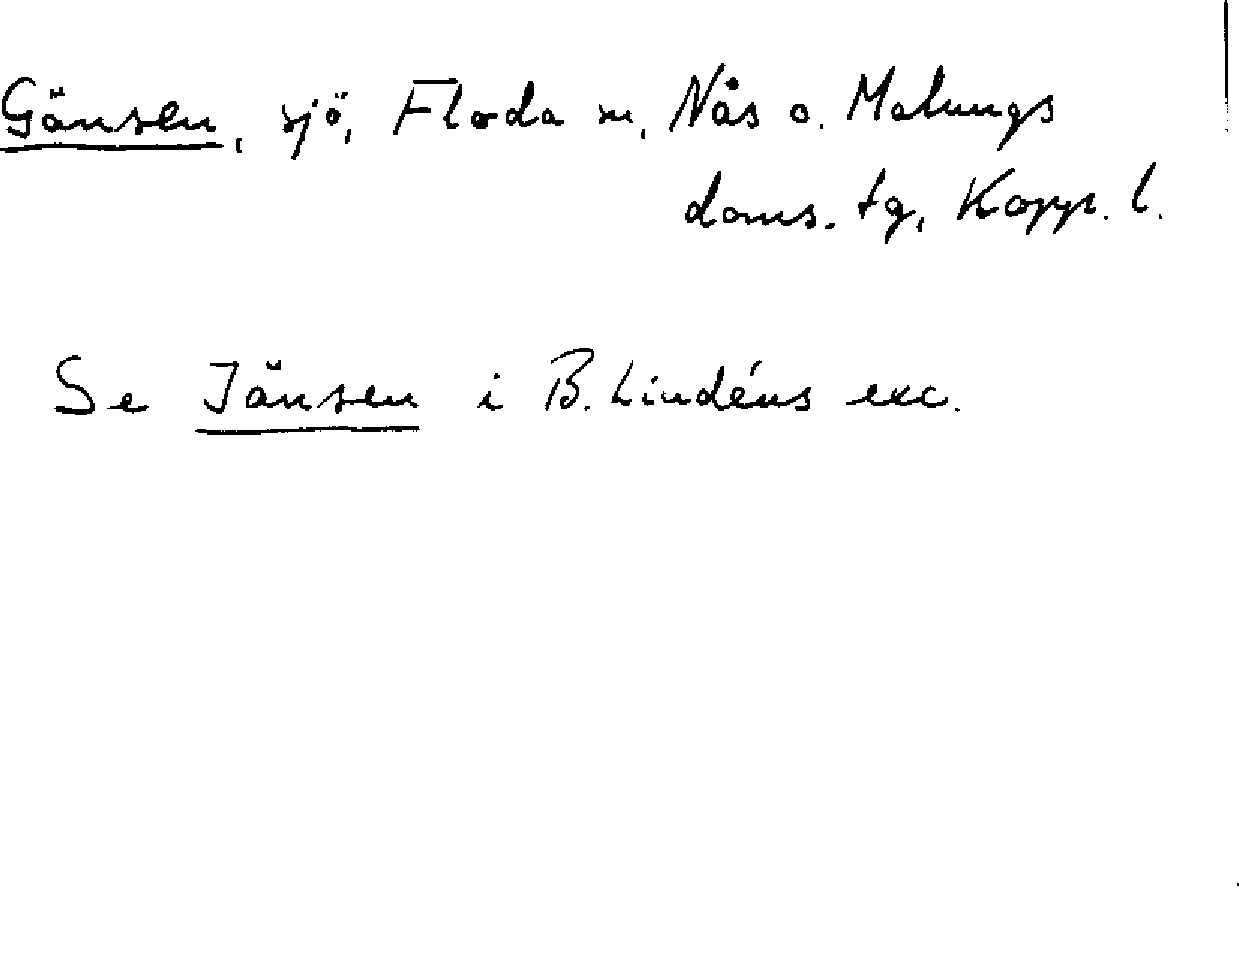 Gänsen, sjö, Floda sn, Nås o. Malungs
doms. tg, Kopp. l.
Se Jänsen i B. Lindéns exc.